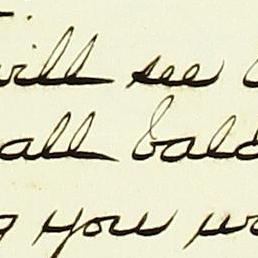 will see
all bald
you